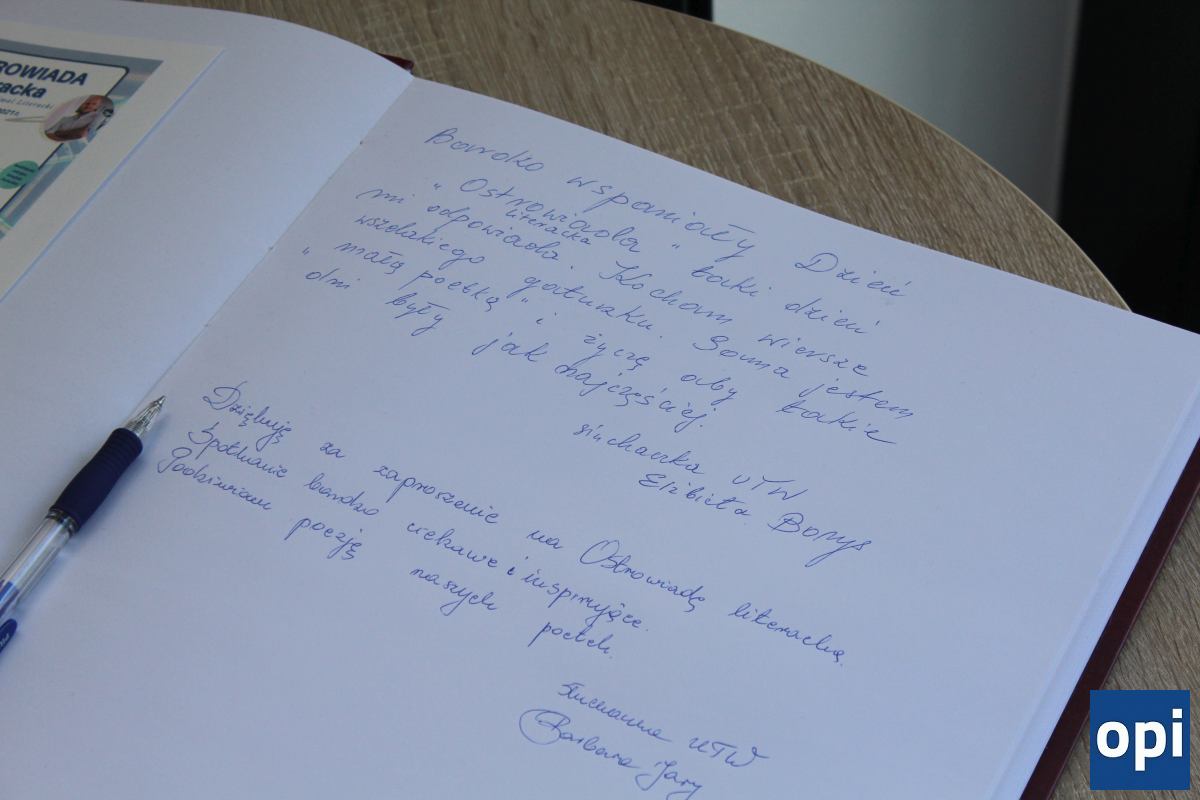 ROWIADA
racka
2021r.
Bardzo wspaniały Dzień
"Ostrowiada" taki dzień
literacka
mi odpowiada. Kocham wiersze
wszelakiego gatunku. Sama jestem
"małą poetką" i życzę aby takie
dni były jak najczęściej.
słuchaczka UTW
Elżbieta Borys
Dziękuję za zaproszenie na Ostrowiadę literacką.
Spotkanie bardzo ciekawe i inspirujące.
Podziwiam poezję naszych poetek.
Słuchaczka UTW
Barbara Jary
opi